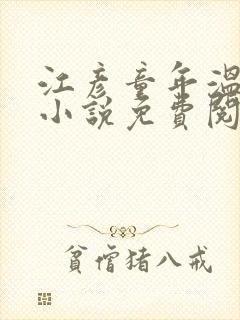 江彦童年温
小說免費閱
貧僧猪八戒